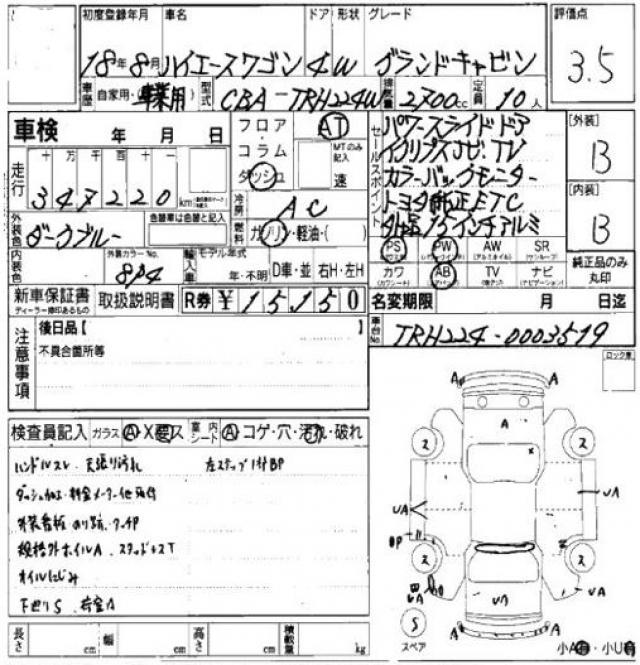 初度登録年月 車名 ドア 形状 グレード 評価点
18年8月 ハイエースワゴン 4W グランドキャビン 3.5
車歴 自家用・(事業用) 型式 CBA-TRH224W 排気量 2700cc 定員 10人
車検 年 月 日
フロア・コラム・ダッシュ AT MTのみ記入 速
セールスポイント
パワースライドドア
イクリプスナビ・TV
カラーバックモニター
トヨタ純正ETC
社外品15インチアルミ
[外装] B
[内装] B
走行 十 万 千 百 十 一
347220 km
冷房 AC
燃料 ガソリン・軽油・( )
外装色 ダークブルー 色替車は色替と記入
内装色 外装カラーNo. 8P4
輸入車 モデル年式 年・不明 D車・並 右H・左H
PS PW AW SR
カワ AB TV ナビ
純正品のみ丸印
新車保証書 取扱説明書 R券 ¥15150
ディーラー捺印あるもの
名変期限 月 日迄
車台No. TRH224-0003519
注意事項
後日品【
不具合箇所等
ロック車
検査員記入 ガラス A・X要ス 室内シート A コゲ・穴・汚れ・破れ
ハンドルスレ 天張り汚れ 左ステップ1付BP
外装看板のり跡・タッチP
規格外ホイルA スタッドナスT
オイルにじみ
下廻りS 荷室A
長さ cm 幅 cm 高さ cm 積載量 kg
A A
A
2 2
UA UA
BP
2 2
UA UA UA
S
スペア
A A
小A有・小U有